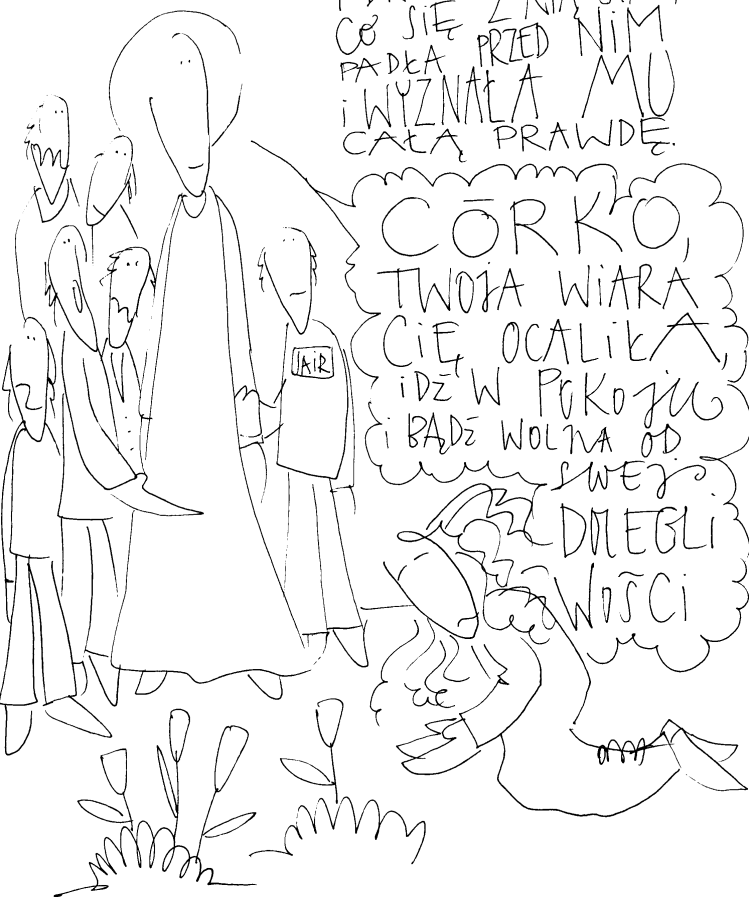 CO SIĘ Z NIĄ
PADŁA PRZED NIM
i WYZNAŁA MU
CAŁĄ PRAWDĘ.
CÓRKO,
TWOJA WIARA
CIĘ OCALIŁA,
iDŹ W POKOJU
i BĄDŹ WOLNA OD
SWEJ
DOLEGLi
WOŚCi
JAiR